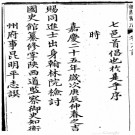 七邑首倡也故喜序
時
嘉慶二十五年歲次庚辰仲春之吉
賜同進士出身翰林院檢討
國史館纂修官陝西道監察御史知衢
州府事昆明平志謨